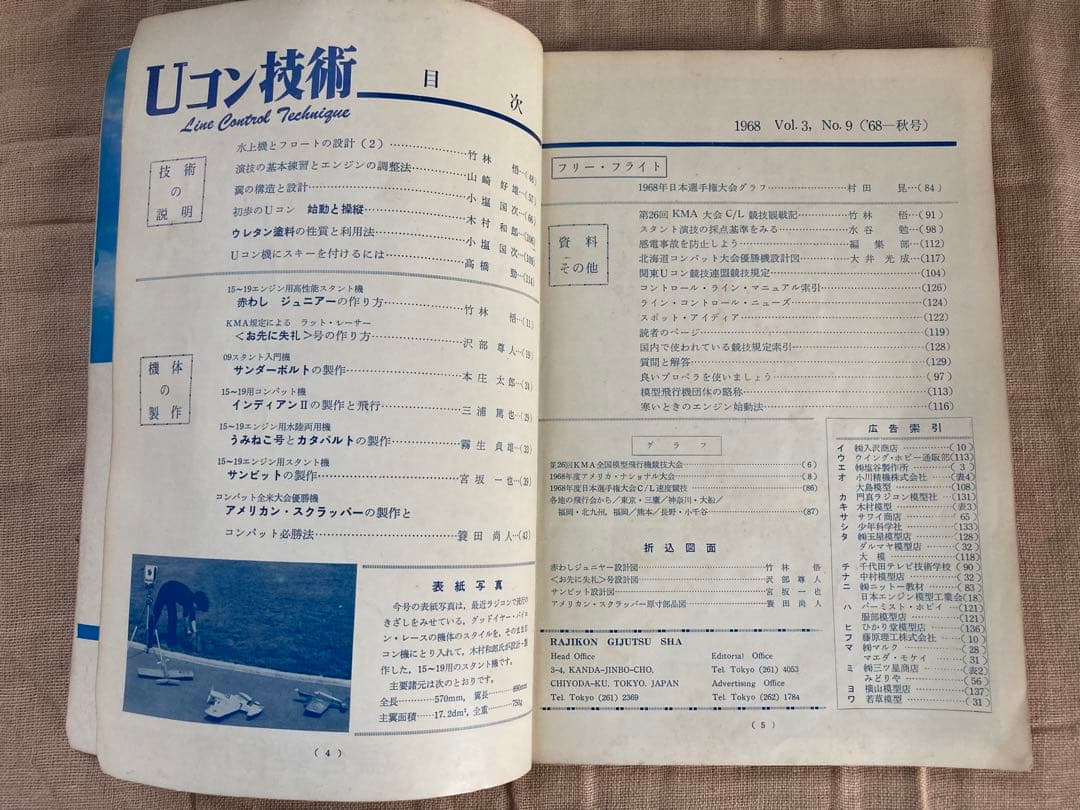 Uコン技術
Line Control Technique
目次
技術の説明
水上機とフロートの設計(2)………竹林 悟…(48)
演技の基本練習とエンジンの調整法………山崎 好雄…(57)
翼の構造と設計………小塩 国次…(66)
初歩のUコン 始動と操縦………木村 和郎…(106)
ウレタン塗料の性質と利用法………小塩 国次…(109)
Uコン機にスキーを付けるには………高橋 勁…(114)
機体の製作
15~19エンジン用高性能スタント機
赤わし ジュニアーの作り方………竹林 悟…(11)
KMA規定による ラット・レーサー
<お先に失礼>号の作り方………沢部 尊人…(19)
09スタント入門機
サンダーボルトの製作………本庄 太郎…(24)
15~19用コンバット機
インディアンⅡの製作と飛行………三浦 篤也…(29)
15~19エンジン用水陸両用機
うみねこ号とカタパルトの製作………霧生 貞雄…(33)
15~19エンジン用スタント機
サンビットの製作………宮坂 一也…(39)
コンバット全米大会優勝機
アメリカン・スクラッパーの製作と
コンバット必勝法………簑田 尚人…(43)
表紙写真
今号の表紙写真は、最近ラジコンで流行の
きざしをみせている、グッドイヤー・パイロ
ン・レースの機体のスタイルを、そのままU
コン機にとり入れて、木村和郎氏が設計・製
作した、15~19用のスタント機です。
主要諸元は次のとおりです。
全長………570mm, 翼長………890mm
主翼面積……17.2dm², 全重………750g
(4)
1968 Vol.3, No.9 ('68—秋号)
フリー・フライト
1968年日本選手権大会グラフ………村田 昆…(84)
資料その他
第26回 KMA 大会 C/L 競技観戦記………竹林 悟…(91)
スタント演技の採点基準をみる………水谷 勉…(98)
感電事故を防止しよう………編集部…(112)
北海道コンバット大会優勝機設計図………大井 光成…(117)
関東Uコン競技連盟競技規定………(104)
コントロール・ライン・マニュアル索引………(126)
ライン・コントロール・ニューズ………(124)
スポット・アイディア………(122)
読者のページ………(119)
国内で使われている競技規定索引………(128)
質問と解答………(129)
良いプロペラを使いましょう………(97)
模型飛行機団体の略称………(113)
寒いときのエンジン始動法………(116)
グラフ
第26回KMA全国模型飛行機競技大会………(6)
1968年度アメリカ・ナショナル大会………(8)
1968年度日本選手権大会C/L速度競技………(86)
各地の飛行会から/東京・三鷹/神奈川・大船/
福岡・北九州, 福岡/熊本/長野・小千谷………(87)
折込図面
赤わしジュニヤー設計図………竹林 悟
<お先に失礼>号設計図………沢部 尊人
サンビット設計図………宮坂 一也
アメリカン・スクラッパー原寸部品図………簑田 尚人
RAJIKON GIJUTSU SHA
Head Office
3-4, KANDA-JINBO-CHO,
CHIYODA-KU, TOKYO, JAPAN
Tel. Tokyo (261) 2369
Editorial Office
Tel. Tokyo (261) 4053
Advertising Office
Tel. Tokyo (262) 1784
広告索引
イ ㈱入沢商店………(10)
ウ ウイング・ホビー通販部(113)
エ ㈱塩谷製作所………(3)
オ 小川精機株式会社………(表4)
大島模型………(108)
カ 門真ラジコン模型社…(131)
キ 木村模型………(表3)
サ サワイ商店………65)
シ 少年科学社………(133)
タ ㈱玉星模型店………(128)
ダルマヤ模型店………(32)
大模………(118)
チ 千代田テレビ技術学校(90)
ナ 中村模型店………(32)
ニ ㈱ニットー教材………(83)
日本エンジン模型工業会(18)
ハ パーミスト・ホビイ…(121)
服部模型店………(121)
ヒ ひかり堂模型店………(136)
フ 藤原理工株式会社………(10)
マ ㈱マルク………(28)
マエダ・モケイ………(31)
ミ ㈱三ツ星商店………(表2)
みどりや………(56)
ヨ 横山模型店………(137)
ワ 若草模型………(31)
(5)